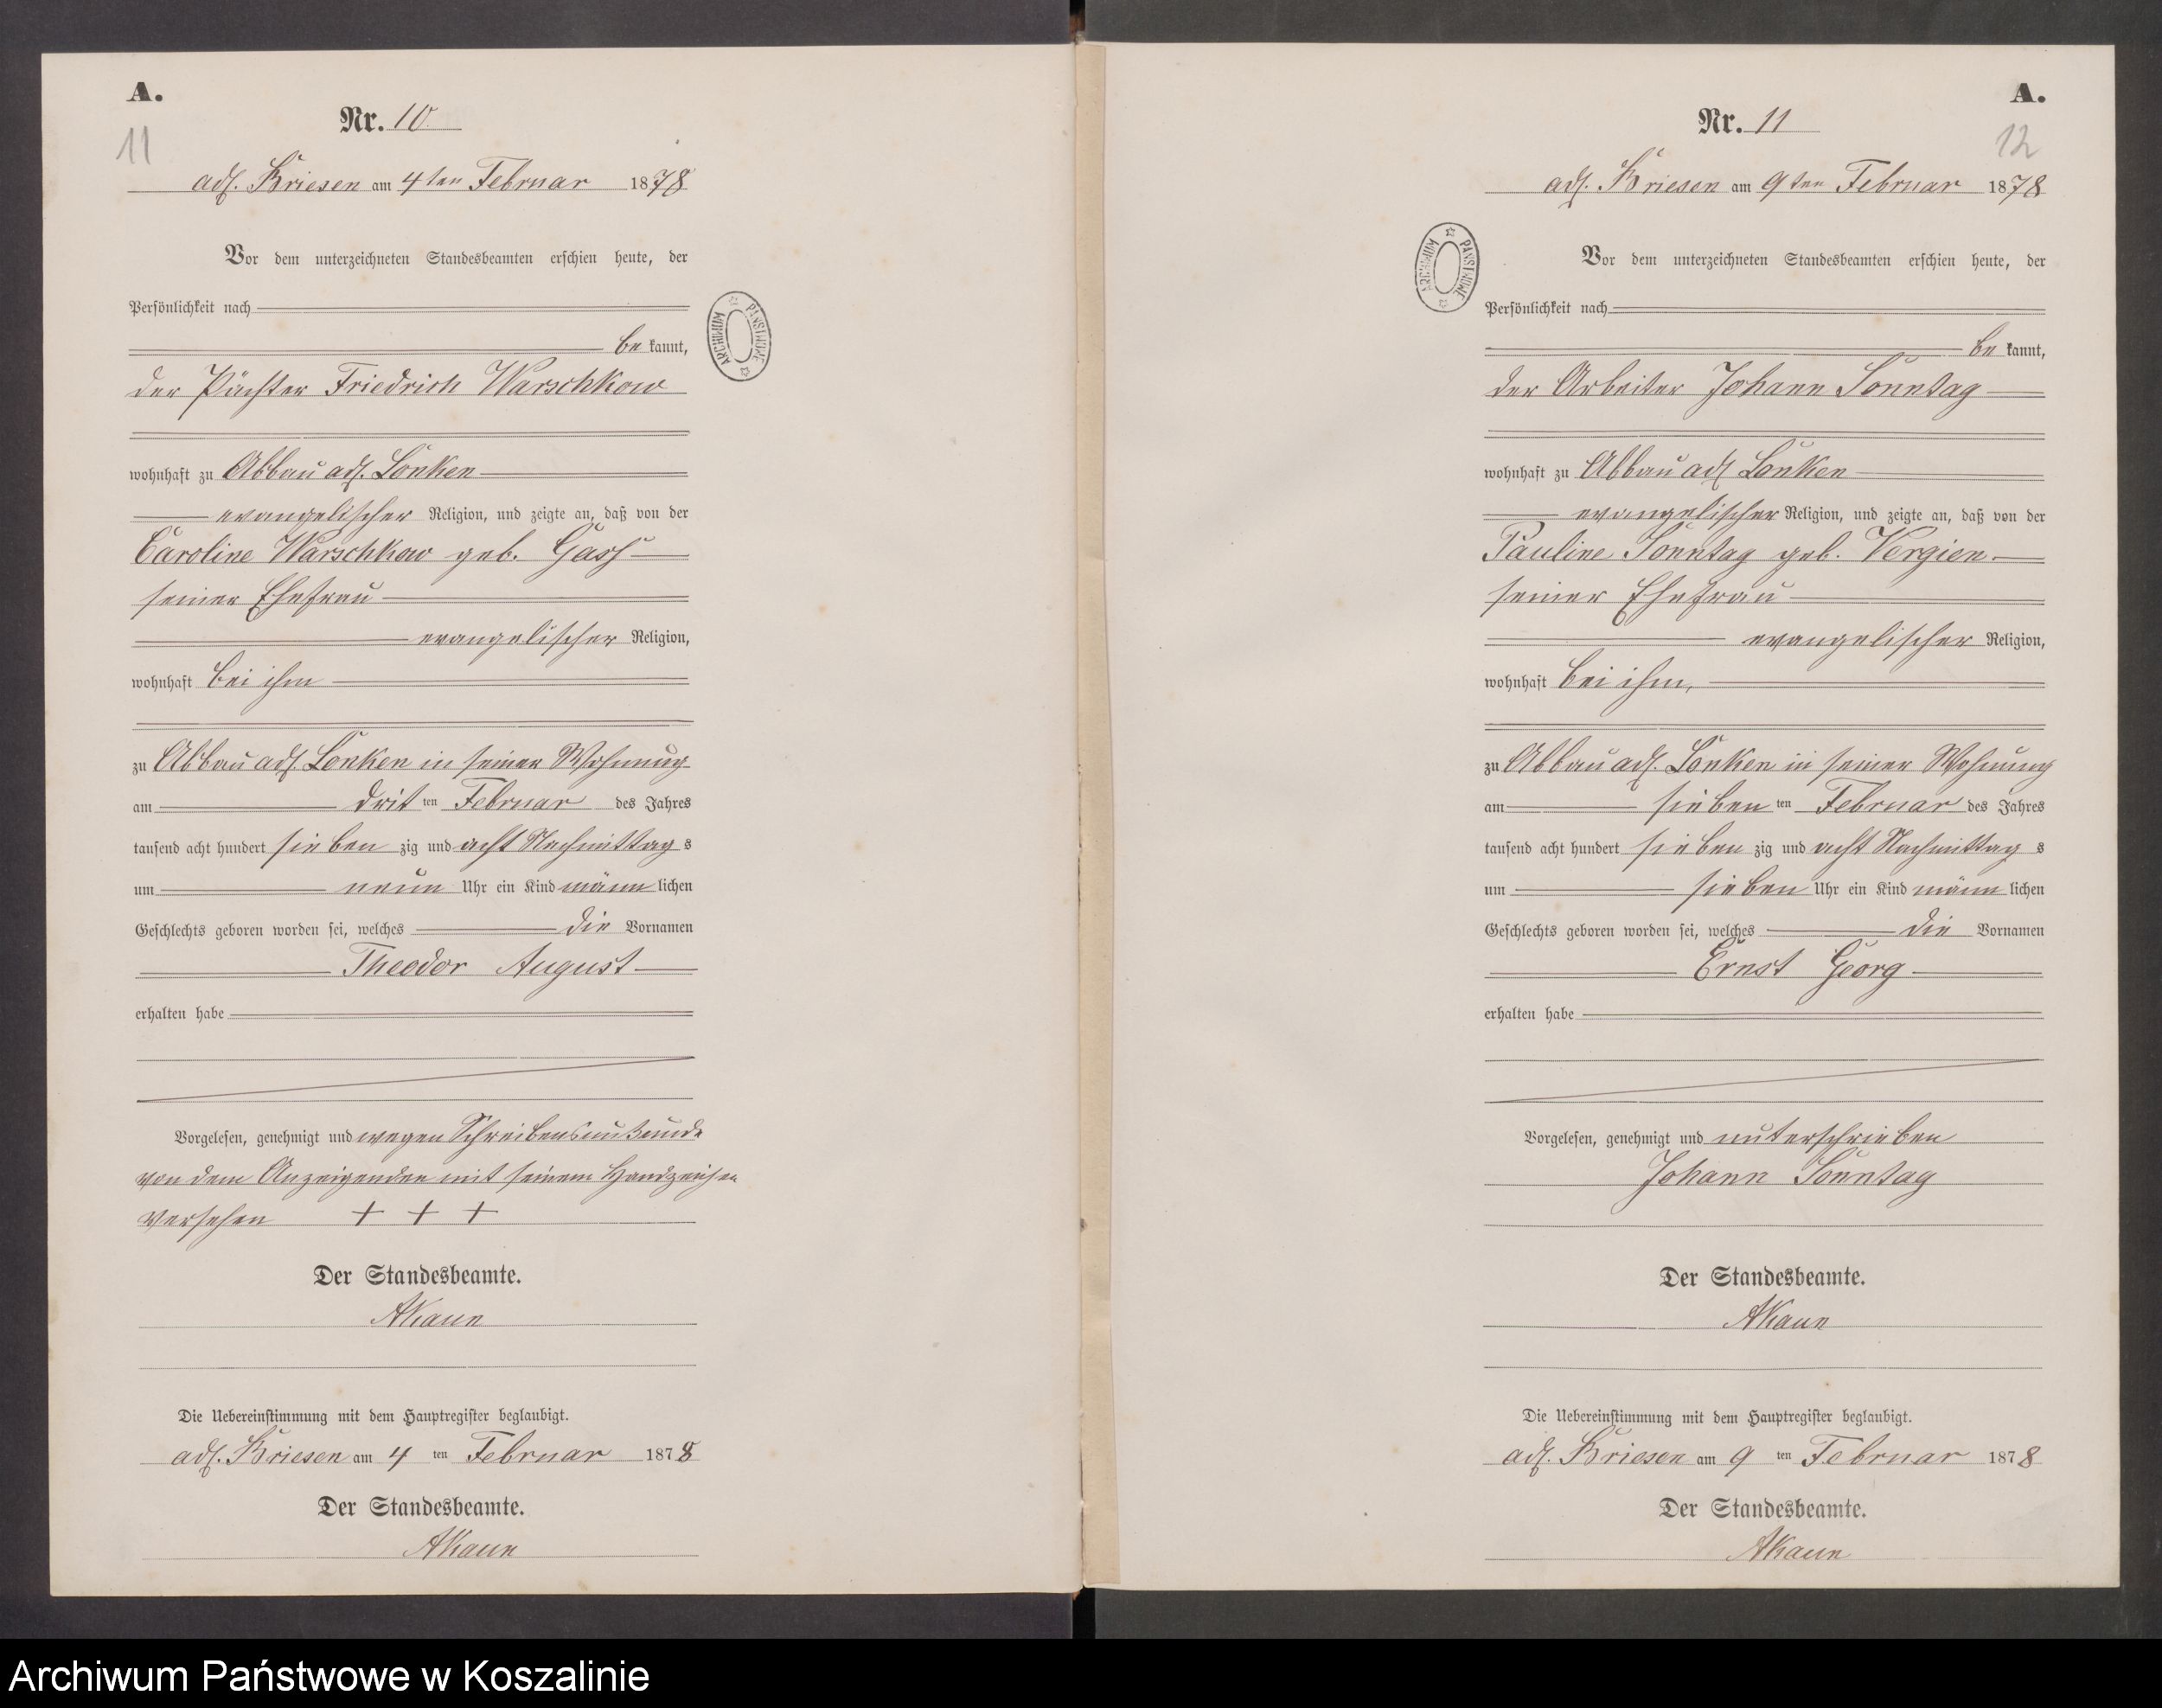 A.
11
Nr. 10
adl. Briesen am 4ten Februar 1878
Vor dem unterzeichneten Standesbeamten erschien heute, der
Persönlichkeit nach
be kannt,
der Pächter Friedrich Warschkow
wohnhaft zu Abbau adl. Lonken
evangelischer Religion, und zeigte an, daß von der
Caroline Warschkow geb. Gass
seiner Ehefrau
evangelischer Religion,
wohnhaft bei ihm
zu Abbau adl. Lonken in seiner Wohnung
am drit ten Februar des Jahres
tausend acht hundert sieben zig und acht Nachmittag s
um neun Uhr ein Kind männ lichen
Geschlechts geboren worden sei, welches die Vornamen
Theodor August
erhalten habe
Vorgelesen, genehmigt und wegen Schreibensunkunde
von dem Anzeigenden mit seinem Handzeichen
versehen + + +
Der Standesbeamte.
AKaun
Die Uebereinstimmung mit dem Hauptregister beglaubigt.
adl. Briesen am 4 ten Februar 1878
Der Standesbeamte.
AKaun
ARCHIWUM PAŃSTWOWE
A.
12
Nr. 11
adl. Briesen am 9ten Februar 1878
Vor dem unterzeichneten Standesbeamten erschien heute, der
Persönlichkeit nach
be kannt,
der Arbeiter Johann Sonntag
wohnhaft zu Abbau adl Lonken
evangelischer Religion, und zeigte an, daß von der
Pauline Sonntag geb. Vergien
seiner Ehefrau
evangelischer Religion,
wohnhaft bei ihm,
zu Abbau adl. Lonken in seiner Wohnung
am sieben ten Februar des Jahres
tausend acht hundert sieben zig und acht Nachmittag s
um sieben Uhr ein Kind männ lichen
Geschlechts geboren worden sei, welches die Vornamen
Ernst Georg
erhalten habe
Vorgelesen, genehmigt und unterschrieben
Johann Sonntag
Der Standesbeamte.
AKaun
Die Uebereinstimmung mit dem Hauptregister beglaubigt.
adl. Briesen am 9 ten Februar 1878
Der Standesbeamte.
AKaun
ARCHIWUM PAŃSTWOWE
Archiwum Państwowe w Koszalinie